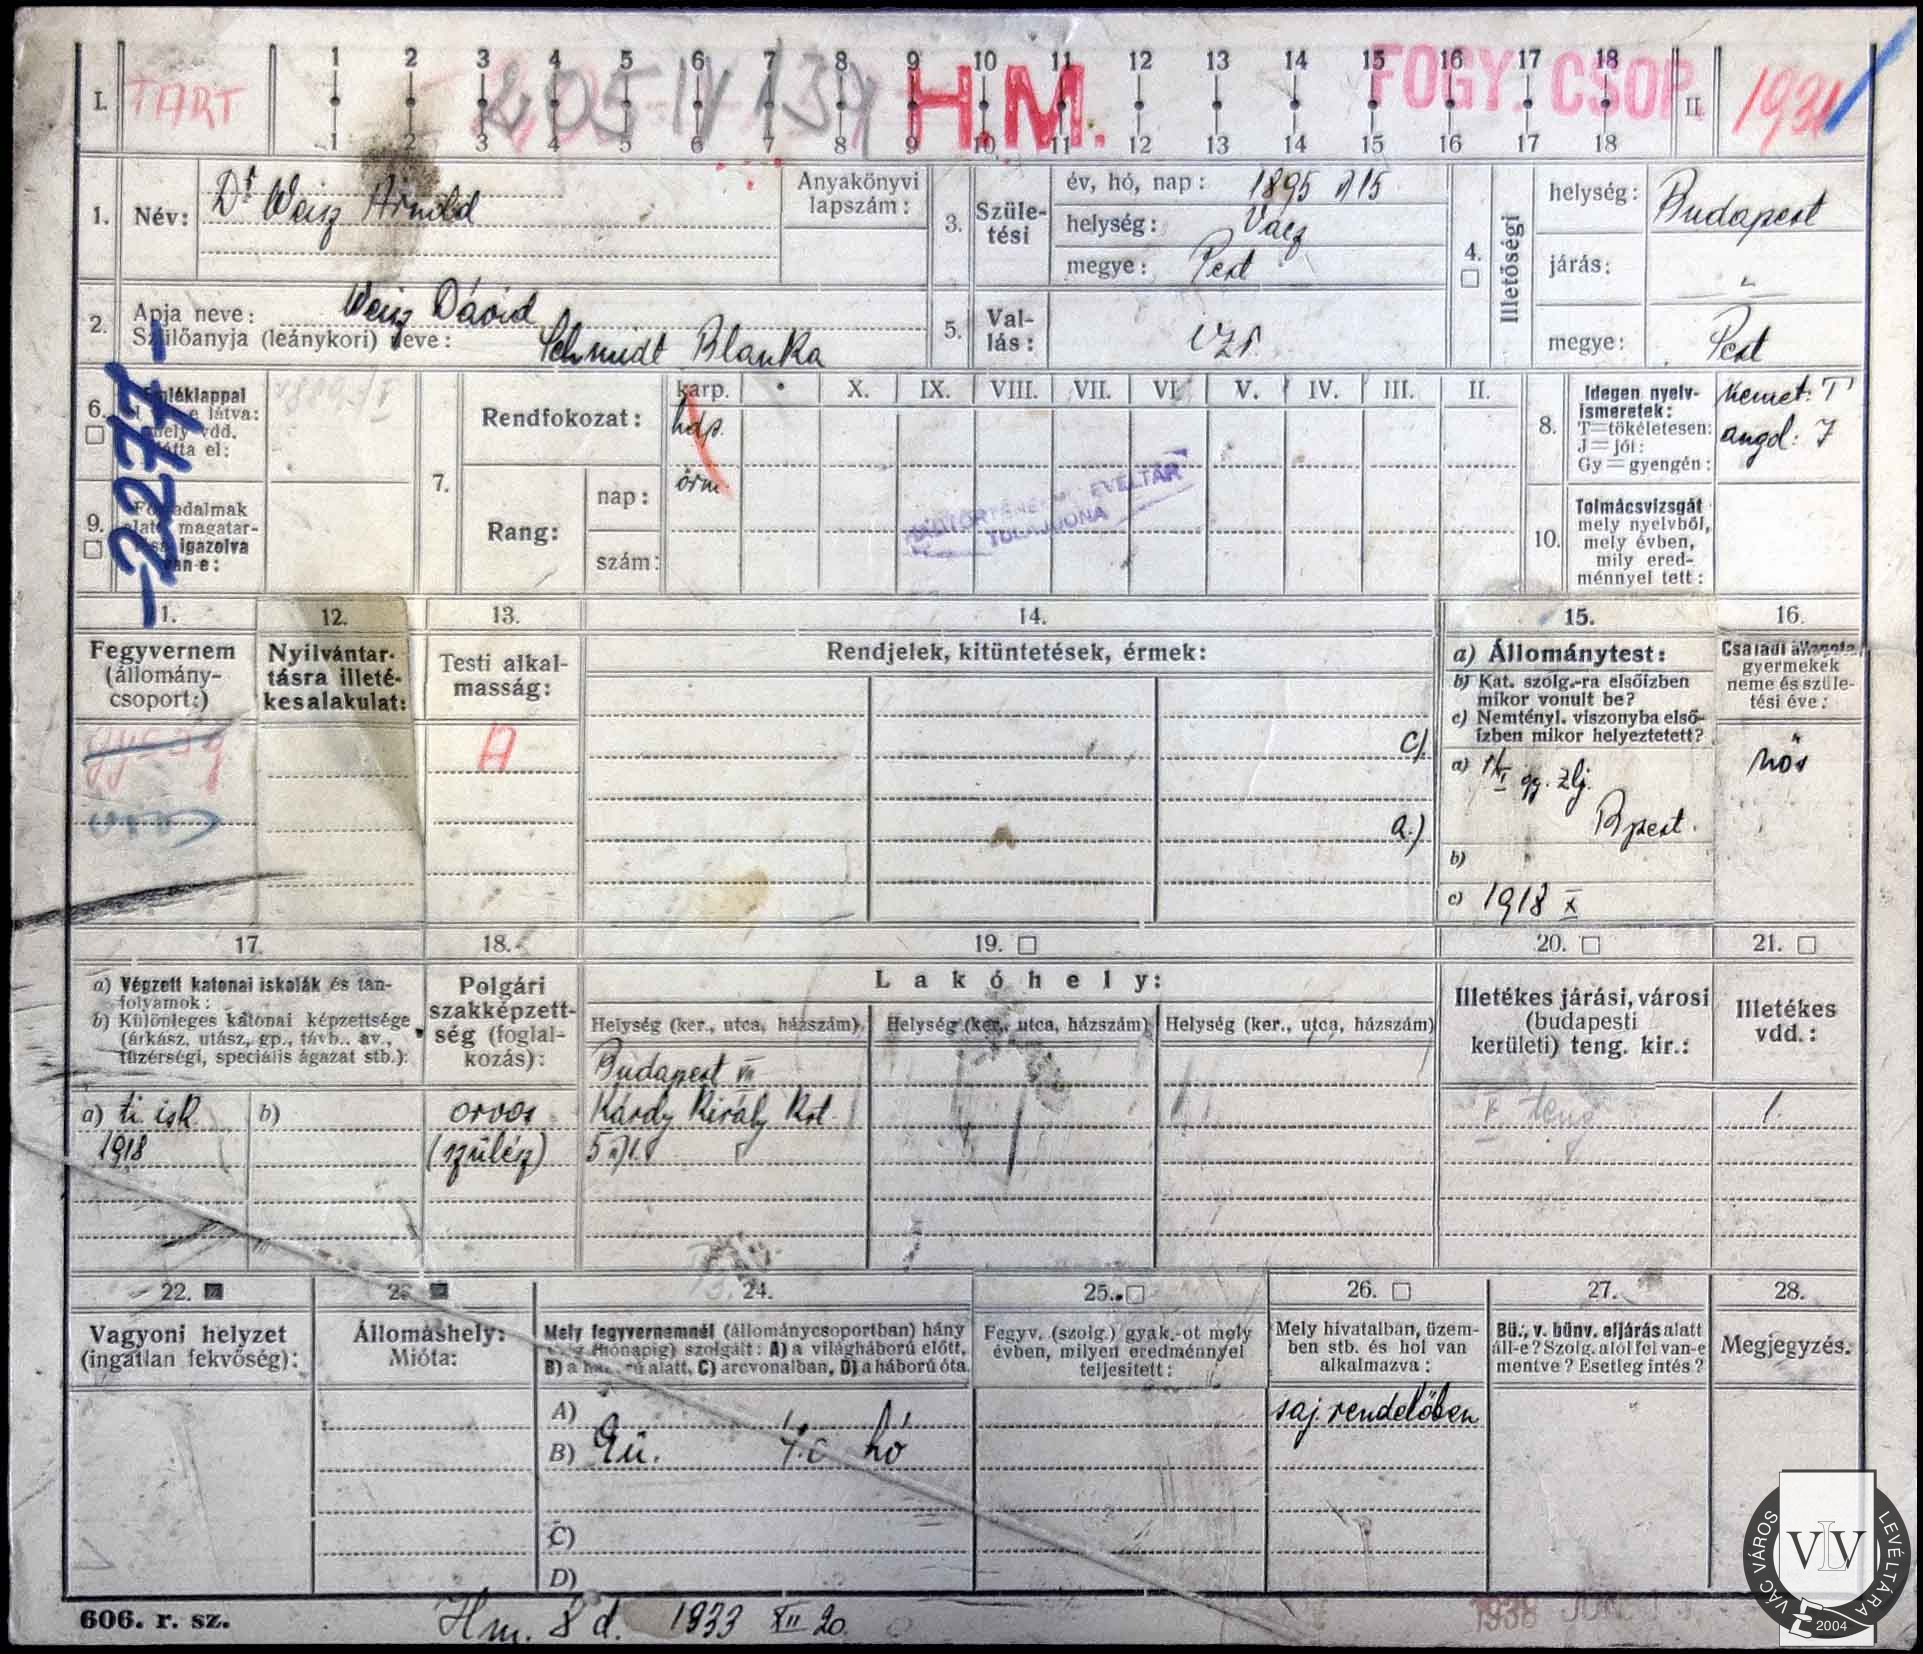 1 2 3 4 5 6 7 8 9 10 11 12 13 14 15 16 17 18
I. TART H.M. FOGY. CSOP. II
1 2 3 4 5 6 7 8 9 10 11 12 13 14 15 16 17 18
1. Név: Dr Weisz Arnold
Anyakönyvi lapszám:
3. Születési
év, hó, nap: 1895
helység: Vácz
megye: Pest
4. Illetőségi
helység: Budapest
járás: "
megye: Pest
2. Apja neve: Weisz Dávid
Szülőanyja (leánykori) neve: Schmidt Blanka
5. Vallás: izr.
-2277-
6.
9.
7. Rendfokozat:
karp. • X. IX. VIII. VII. VI. V. IV. III. II.
hdp.
őrm.
Rang:
nap:
szám:
LEVÉLTÁR
TULAJDONA
8. Idegen nyelv-
ismeretek:
T=tökéletesen:
J=jól:
Gy=gyengén:
német: T
angol: J
10. Tolmácsvizsgát
mely nyelvből,
mely évben,
mily ered-
ménnyel tett:
12. 13. 14. 15. 16.
Fegyvernem
(állomány-
csoport:)
Nyilvántar-
tásra illeté-
kesalakulat:
Testi alkal-
masság:
A
Rendjelek, kitüntetések, érmek:
c).
a.)
a) Állománytest:
b) Kat. szolg.-ra elsőízben
mikor vonult be?
c) Nemtényl. viszonyba első-
ízben mikor helyeztetett?
a) gy. zlj.
Bpest.
b)
c) 1918 X
Családi állapota,
gyermekek
neme és szüle-
tési éve:
nős
17. 18. 19. 20. 21.
a) Végzett katonai iskolák és tan-
folyamok:
b) Különleges katonai képzettsége
(árkász, utász, gp., távb., av.,
tüzérségi, speciális ágazat stb.):
a) ti. isk.
1918
b)
Polgári
szakképzett-
ség (foglal-
kozás):
orvos
(szülész)
Lakóhely:
Helység (ker., utca, házszám) Helység (ker., utca, házszám) Helység (ker., utca, házszám)
Budapest VII
Király
Illetékes járási, városi
(budapesti
kerületi) teng. kir.:
Illetékes
vdd.:
1.
22. 24. 25. 26. 27. 28.
Vagyoni helyzet
(ingatlan fekvőség):
Állomáshely:
Mióta:
Mely fegyvernemnél (állománycsoportban) hány
szolgált: A) a világháború előtt,
alatt, C) arcvonalban, D) a háború óta
A)
B) Eü. hó
C)
D)
Fegyv. (szolg.) gyak.-ot mely
évben, milyen eredménnyel
teljesített:
Mely hivatalban, üzem-
ben stb. és hol van
alkalmazva:
saj. rendelőben
Bü., v. bünv. eljárás alatt
áll-e? Szolg. alól fel van-e
mentve? Esetleg intés?
Megjegyzés.
606. r. sz.
Hm. 8 d. 1933 XII 20.
1938 JUN.
VÁC VÁROS LEVÉLTÁRA
VLV
2004